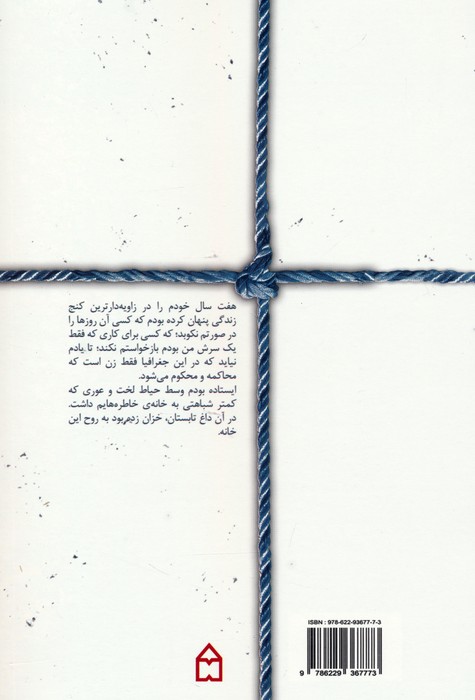 هفت سال خودم را در زاویه‌دارترین کنج
زندگی پنهان کرده بودم که کسی آن روزها را
در صورتم نکوبد؛ که کسی برای کاری که فقط
یک سرش من بودم بازخواستم نکند؛ تا یادم
نیاید که در این جغرافیا فقط زن است که
محاکمه و محکوم می‌شود.
ایستاده بودم وسط حیاط لخت و عوری که
کمتر شباهتی به خانه‌ی خاطره‌هایم داشت.
در آن داغ تابستان، خزان زده بود به روح این
خانه.
ISBN : 978-622-93677-7-3
9 786229 367773